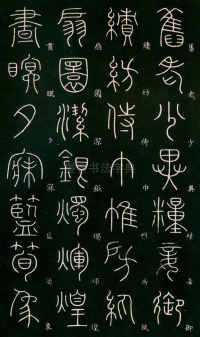 舊老少異糧妾御
績紡侍巾帷房紈
扇圓潔銀燭煒煌
晝眠夕寐藍筍象